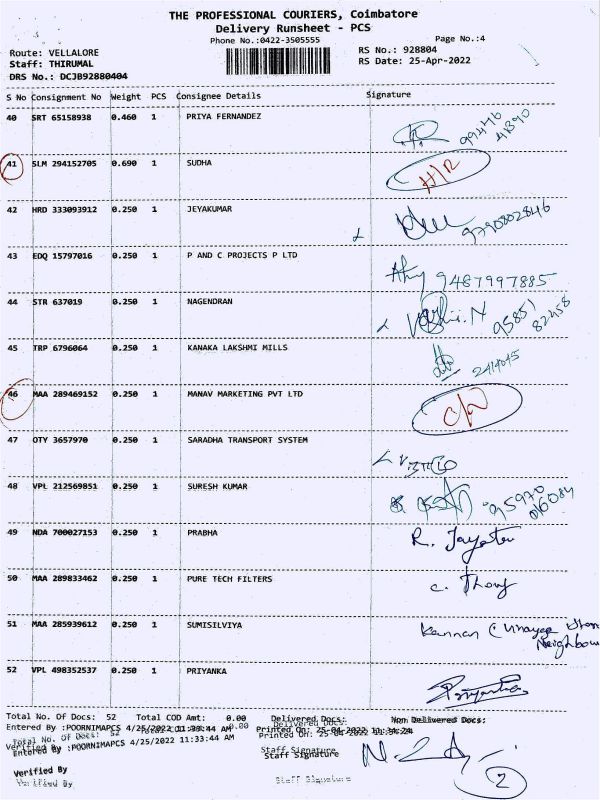 THE PROFESSIONAL COURIERS, Coimbatore
Delivery Runsheet - PCS
Phone No.:0422-3505555
Page No.:4
Route: VELLALORE
RS No.: 928804
Staff: THIRUMAL
RS Date: 25-Apr-2022
DRS No.: DCJB92880404
S No Consignment No Weight PCS Consignee Details Signature
40 SRT 65158938 0.460 1 PRIYA FERNANDEZ
41 SLM 294152705 0.690 1 SUDHA H/R
42 HRD 333093912 0.250 1 JEYAKUMAR 9790802846
43 EDQ 15797016 0.250 1 P AND C PROJECTS P LTD 9487997885
44 STR 637019 0.250 1 NAGENDRAN 95851 82458
45 TRP 6796064 0.250 1 KANAKA LAKSHMI MILLS
46 MAA 289469152 0.250 1 MANAV MARKETING PVT LTD
47 OTY 3657970 0.250 1 SARADHA TRANSPORT SYSTEM
48 VPL 212569851 0.250 1 SURESH KUMAR 95970 06084
49 NDA 700027153 0.250 1 PRABHA
50 MAA 289833462 0.250 1 PURE TECH FILTERS
51 MAA 285939612 0.250 1 SUMISILVIYA Kannan
Neighbour
52 VPL 498352537 0.250 1 PRIYANKA Priyanka
Total No. Of Docs: 52 Total COD Amt: 0.00 Delivered Docs: Non Delivered Docs:
Entered By :POORNIMAPCS 4/25/2022 11:33:44 AM Printed On: 25-04-2022 11:34:24
Verified By
Staff Signature
2